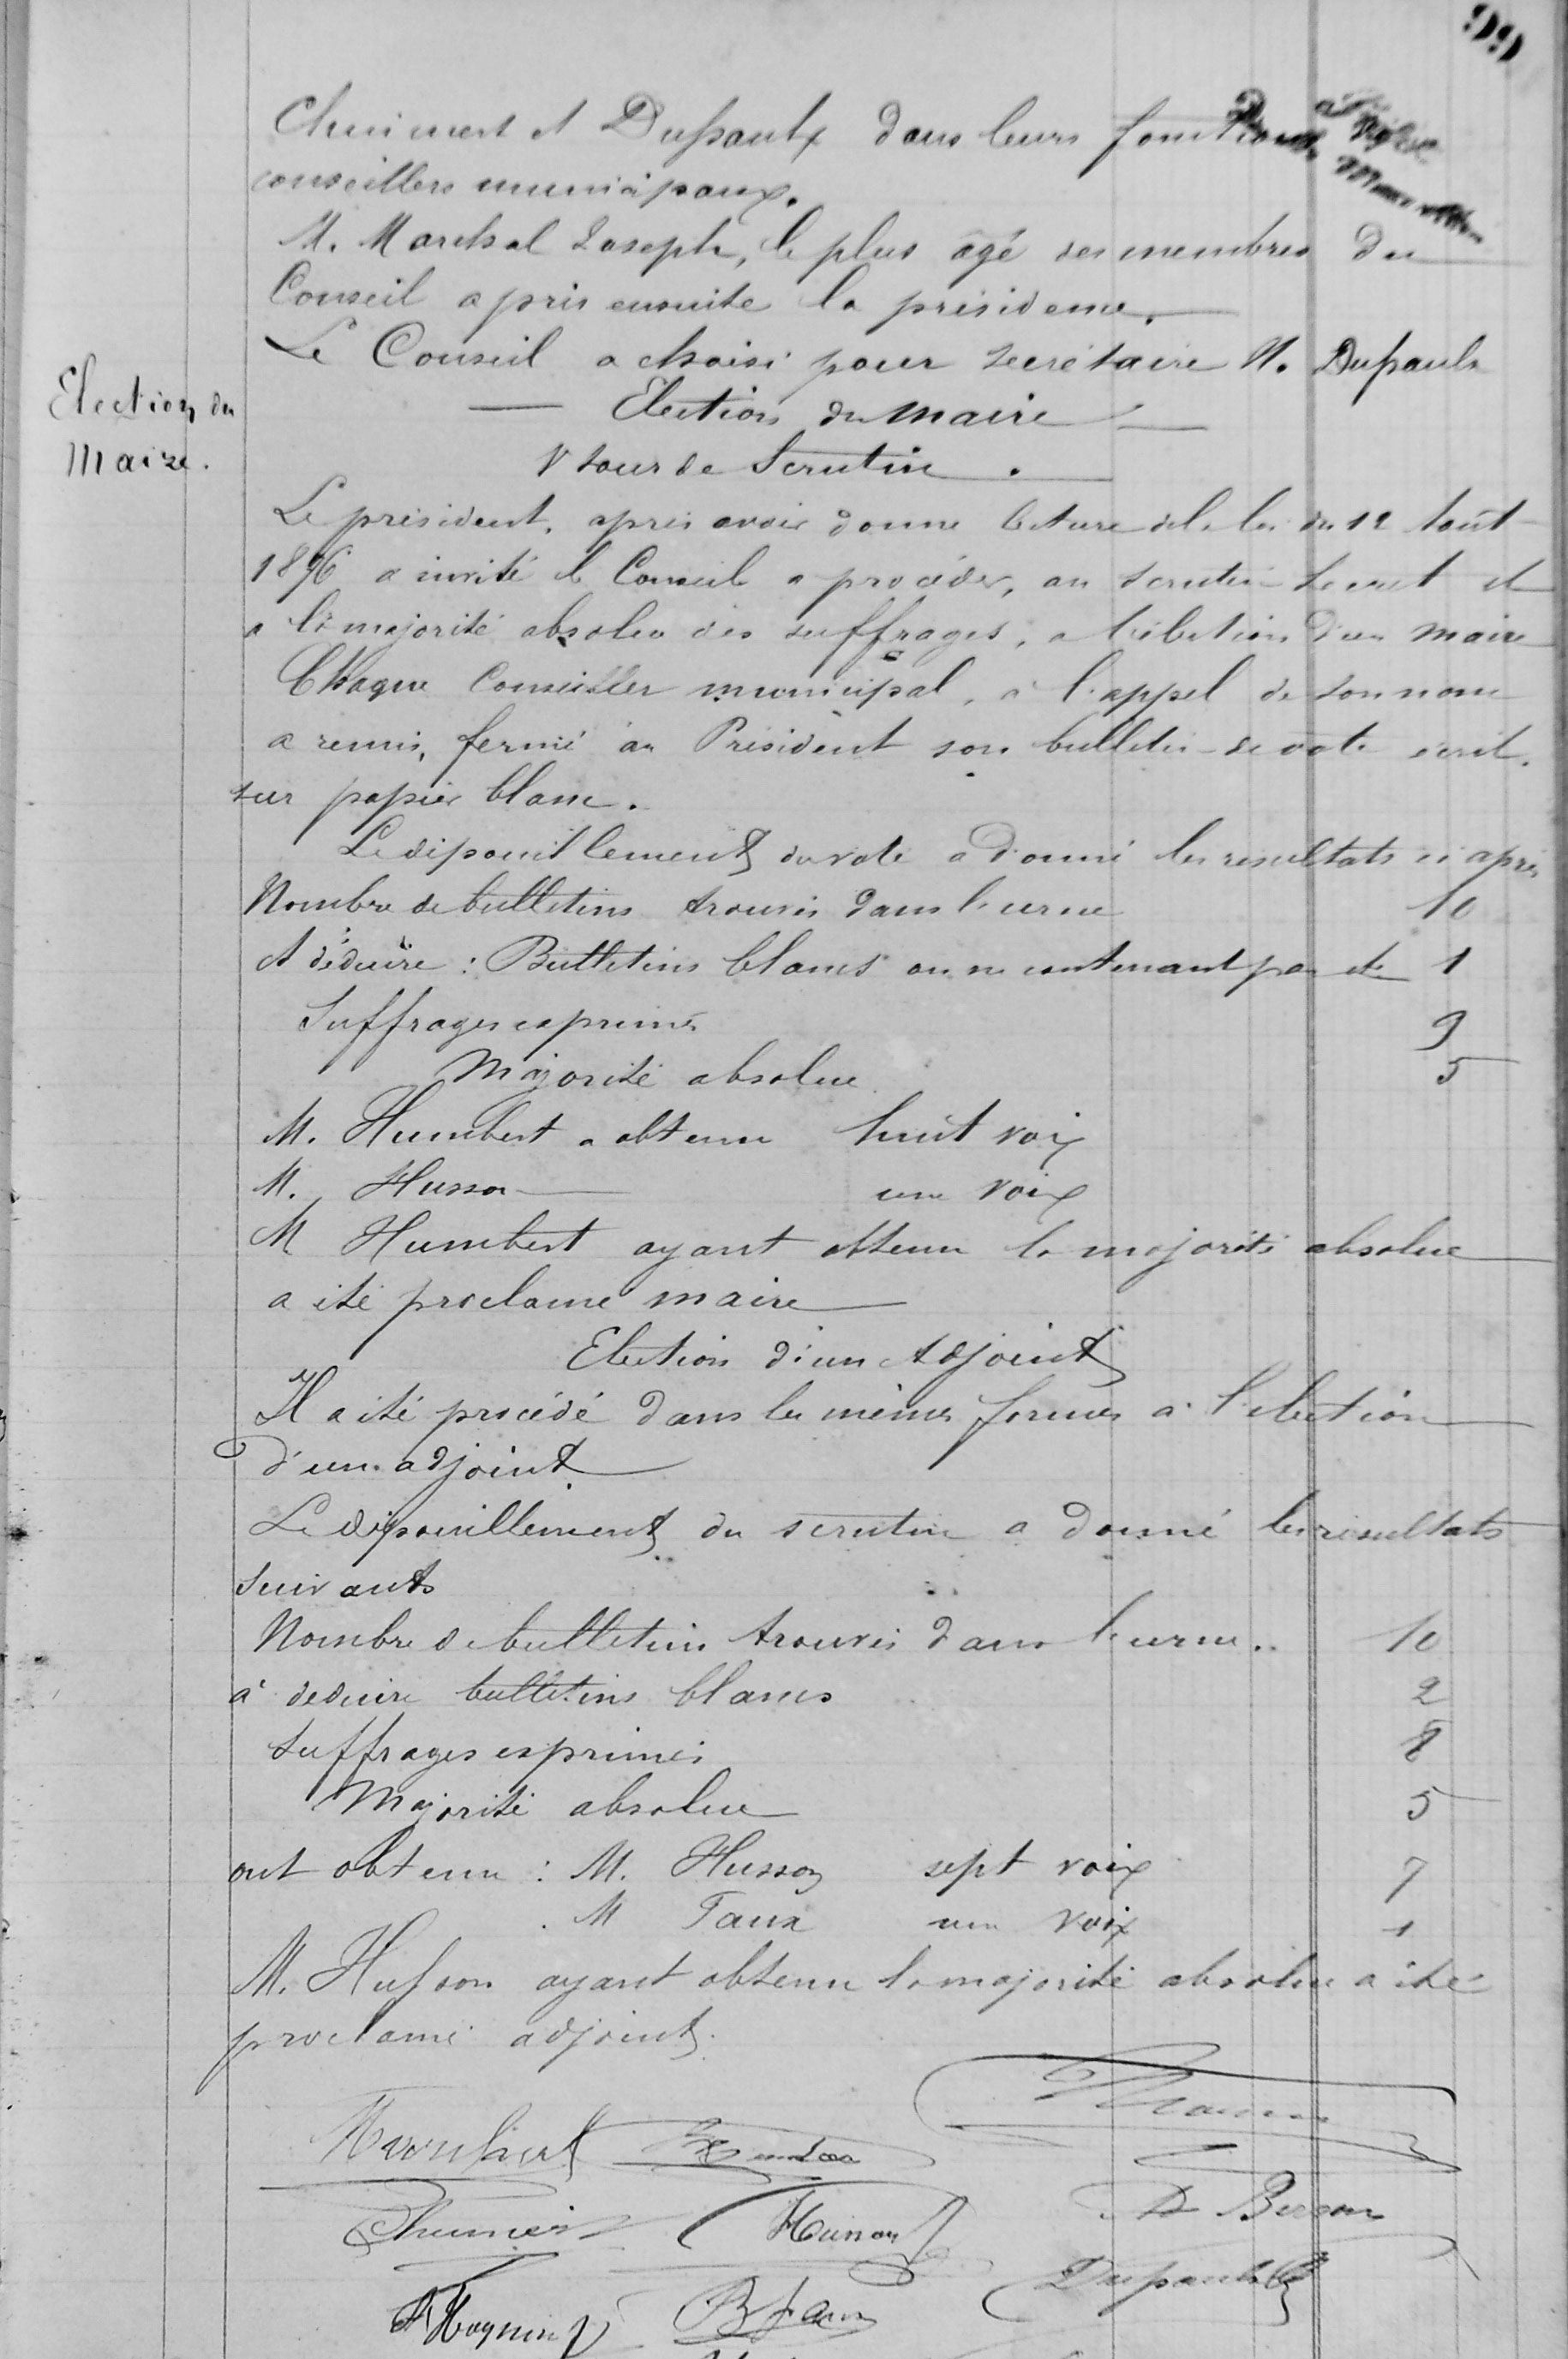 99
Chuiment et Dupaulx dans leurs fonctions de
conseillers municipaux.
M. Marchal Joseph, le plus agé des membres du
Conseil a pris ensuite la présidence.
Le Conseil a choisi pour secrétaire M. Dupaulx
Election du
Maire.
Election du maire
1r tour de Scrutin.
Le président, apres avoir donné lecture de la loi du 12 août
1876 a invité le Conseil a procéder, au scrutin secret et
a la majorité absolue des suffrages, a l'élection d'un maire
Chaque Conseiller municipal, a l'appel de son nom
a remis, fermé au Président son bulletin de vote écrit
sur papier blanc.
Le dépouillement du vote a donné les resultats ci après
Nombre de bulletins trouvés dans l'urne 10
A déduire : Bulletins blancs ou ne contenant pas etc 1
Suffrages exprimés 9
Majorité absolue 5
M. Humbert a obtenu huit voix
M. Husson une voix
M Humbert ayant obtenu la majorité absolue
a été proclamé maire
Election d'un Adjoint
Il a été procédé dans les mêmes formes a l'election
d'un adjoint
Le dépouillement du scrutin a donné les résultats
suivants
Nombre de bulletins trouvés dans l'urne.. 10
à deduire bulletins blancs 2
Suffrages exprimés 8
Majorité absolue 5
ont obtenu : M. Husson sept voix 7
M Faux une voix 1
M. Husson ayant obtenu la majorité absolue a été
proclamé adjoint.
Humbert
Husson
Dupaulx